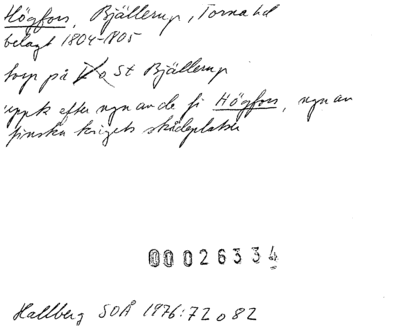 Högfors, Bjällerup, Torna hd
belagt 1804-1805
torp på V o St Bjällerup
uppk efter ngn av de fi Högfors, ngn av
finska krigets skådeplatser
00026334
Hallberg SOÅ 1976:72 o 82